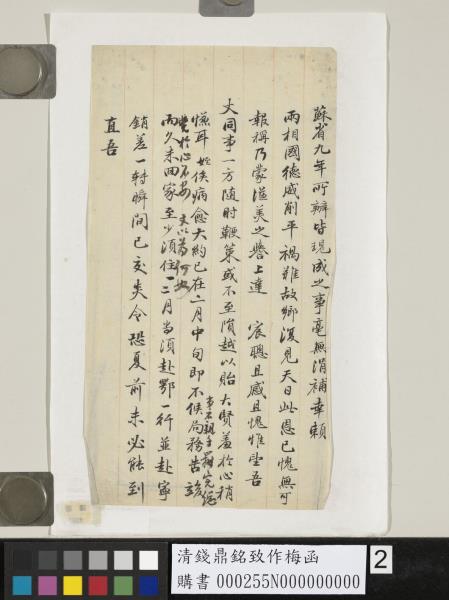 蘇省九年所辦皆現成之事毫無涓補幸賴
兩相國德威削平禍難故鄉復見天日此恩已愧無可
報稱乃蒙溢美之譽上達 宸聰且感且愧惟望吾
大同事一方隨時鞭策或不至隕越以貽大賢羞於心稍
慊耳 姪俟病愈大約已在二月中旬即不候局務告竣
事不親手辦完總
覺於心不安 未以為何如
而久未回家至少須住一二月尚須赴鄂一行並赴寧
銷差一轉瞬間已交炎令恐夏前未必能到
直吾
清錢鼎銘致作梅函
購書 000255N000000000
2